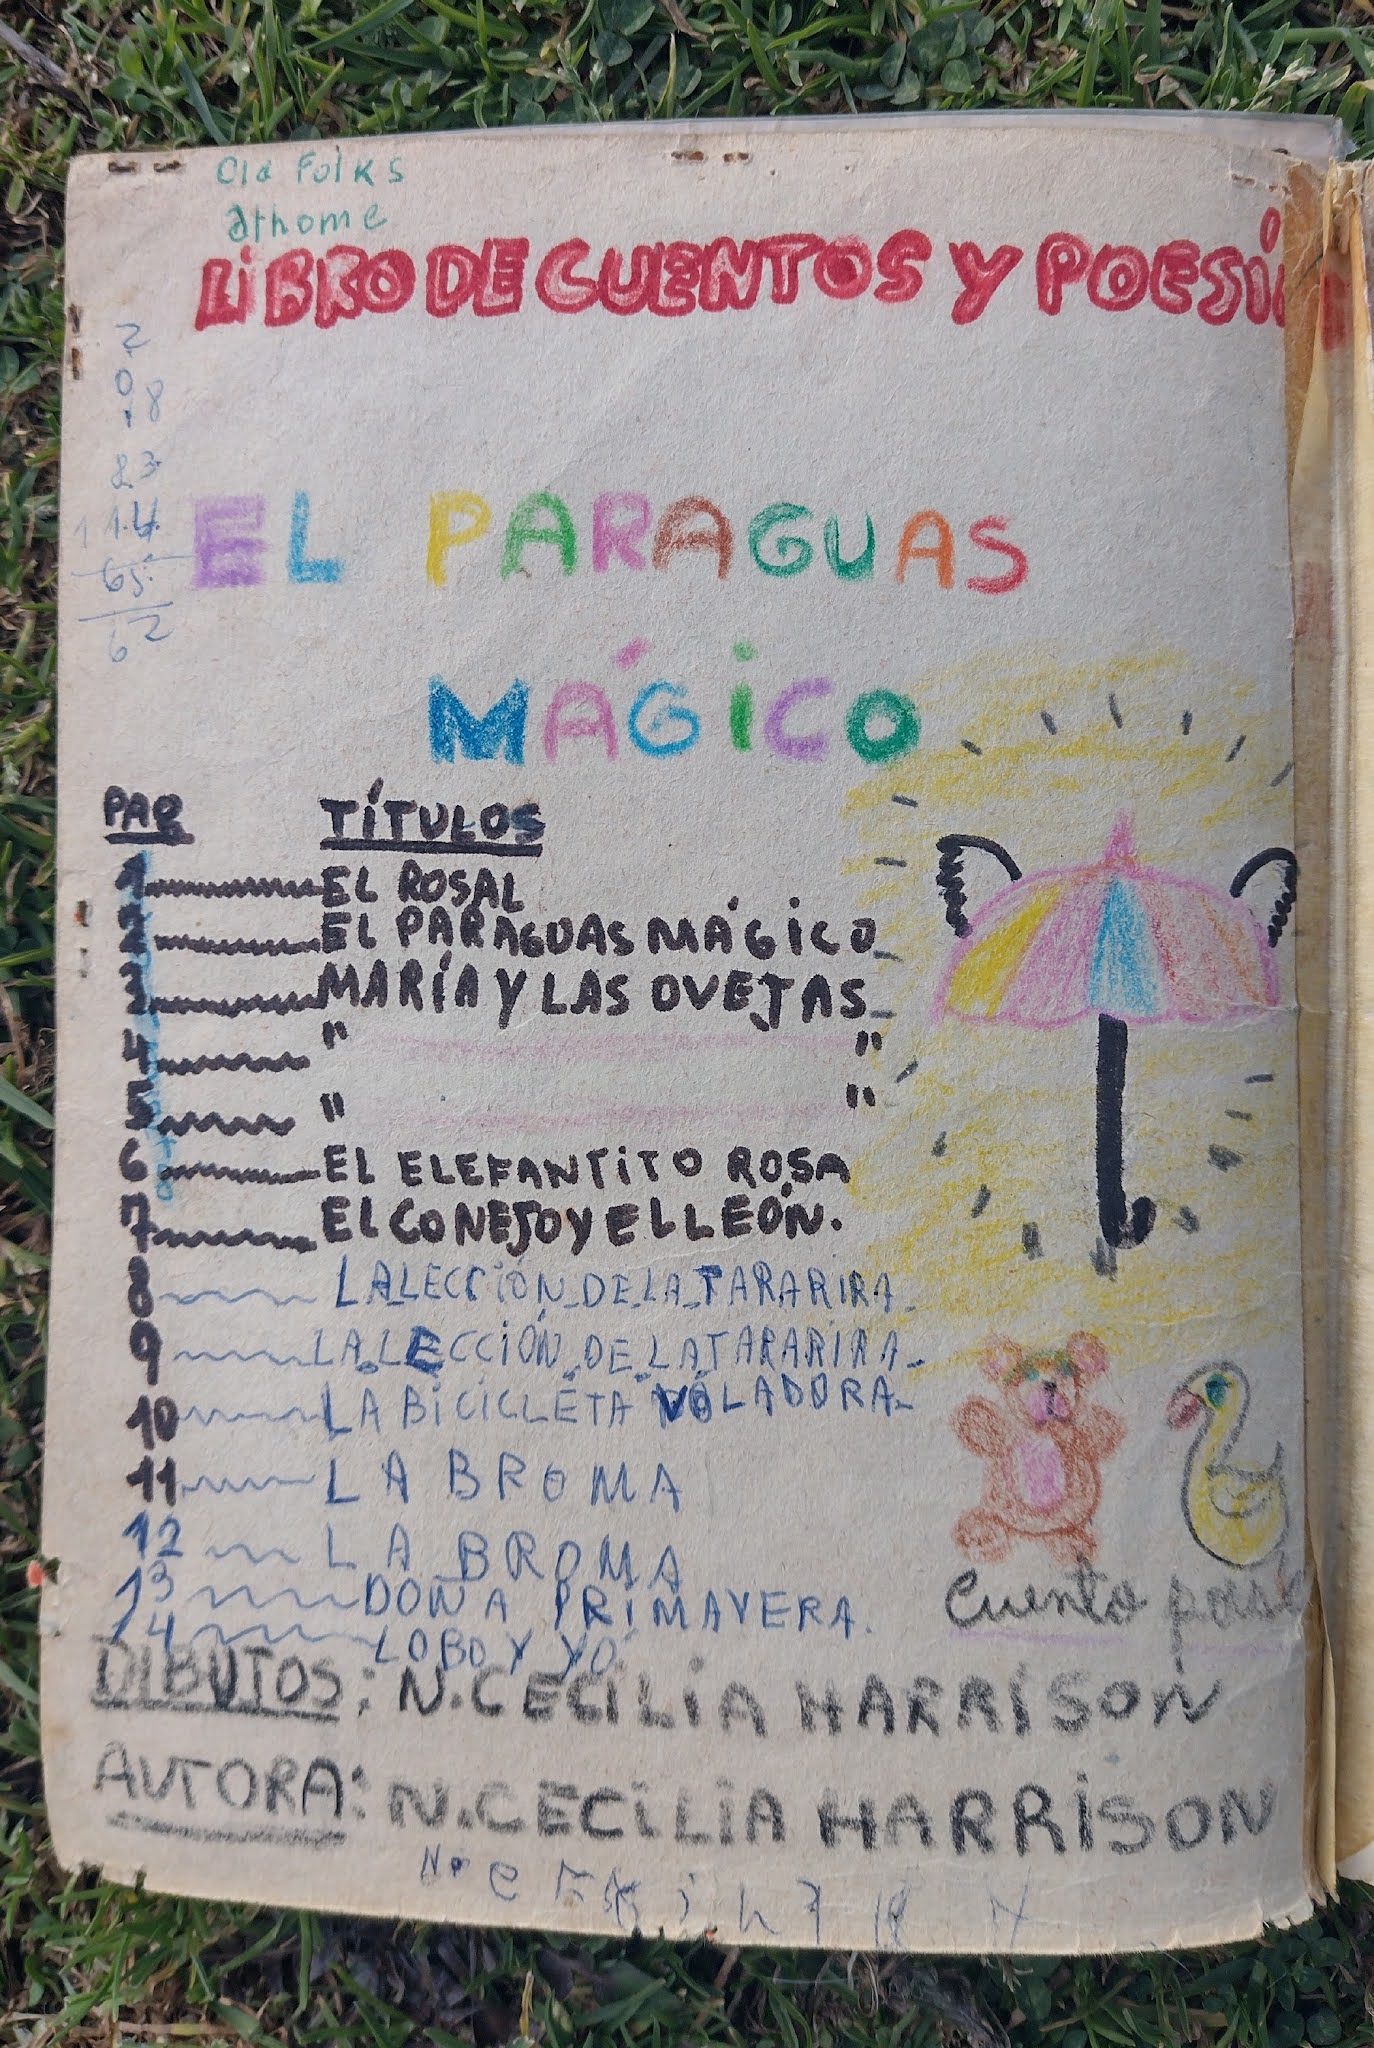 Old Folks
at home
LIBRO DE CUENTOS Y POESÍA
2
0
8
83
114
65
62
EL PARAGUAS
MÁGICO
PAG TÍTULOS
1 EL ROSAL
2 EL PARAGUAS MÁGICO
3 MARÍA Y LAS OVEJAS
4 " "
5 " "
6 EL ELEFANTITO ROSA
7 EL CONEJO Y EL LEÓN.
8 LA LECCIÓN DE LA TARARIRA
9 LA LECCIÓN DE LA TARARIRA
10 LA BICICLETA VOLADORA
11 LA BROMA
12 LA BROMA
13 DOÑA PRIMAVERA.
14 LOBO Y YO
Cuento
DIBUJOS: N. CECILIA HARRISON
AUTORA: N. CECILIA HARRISON